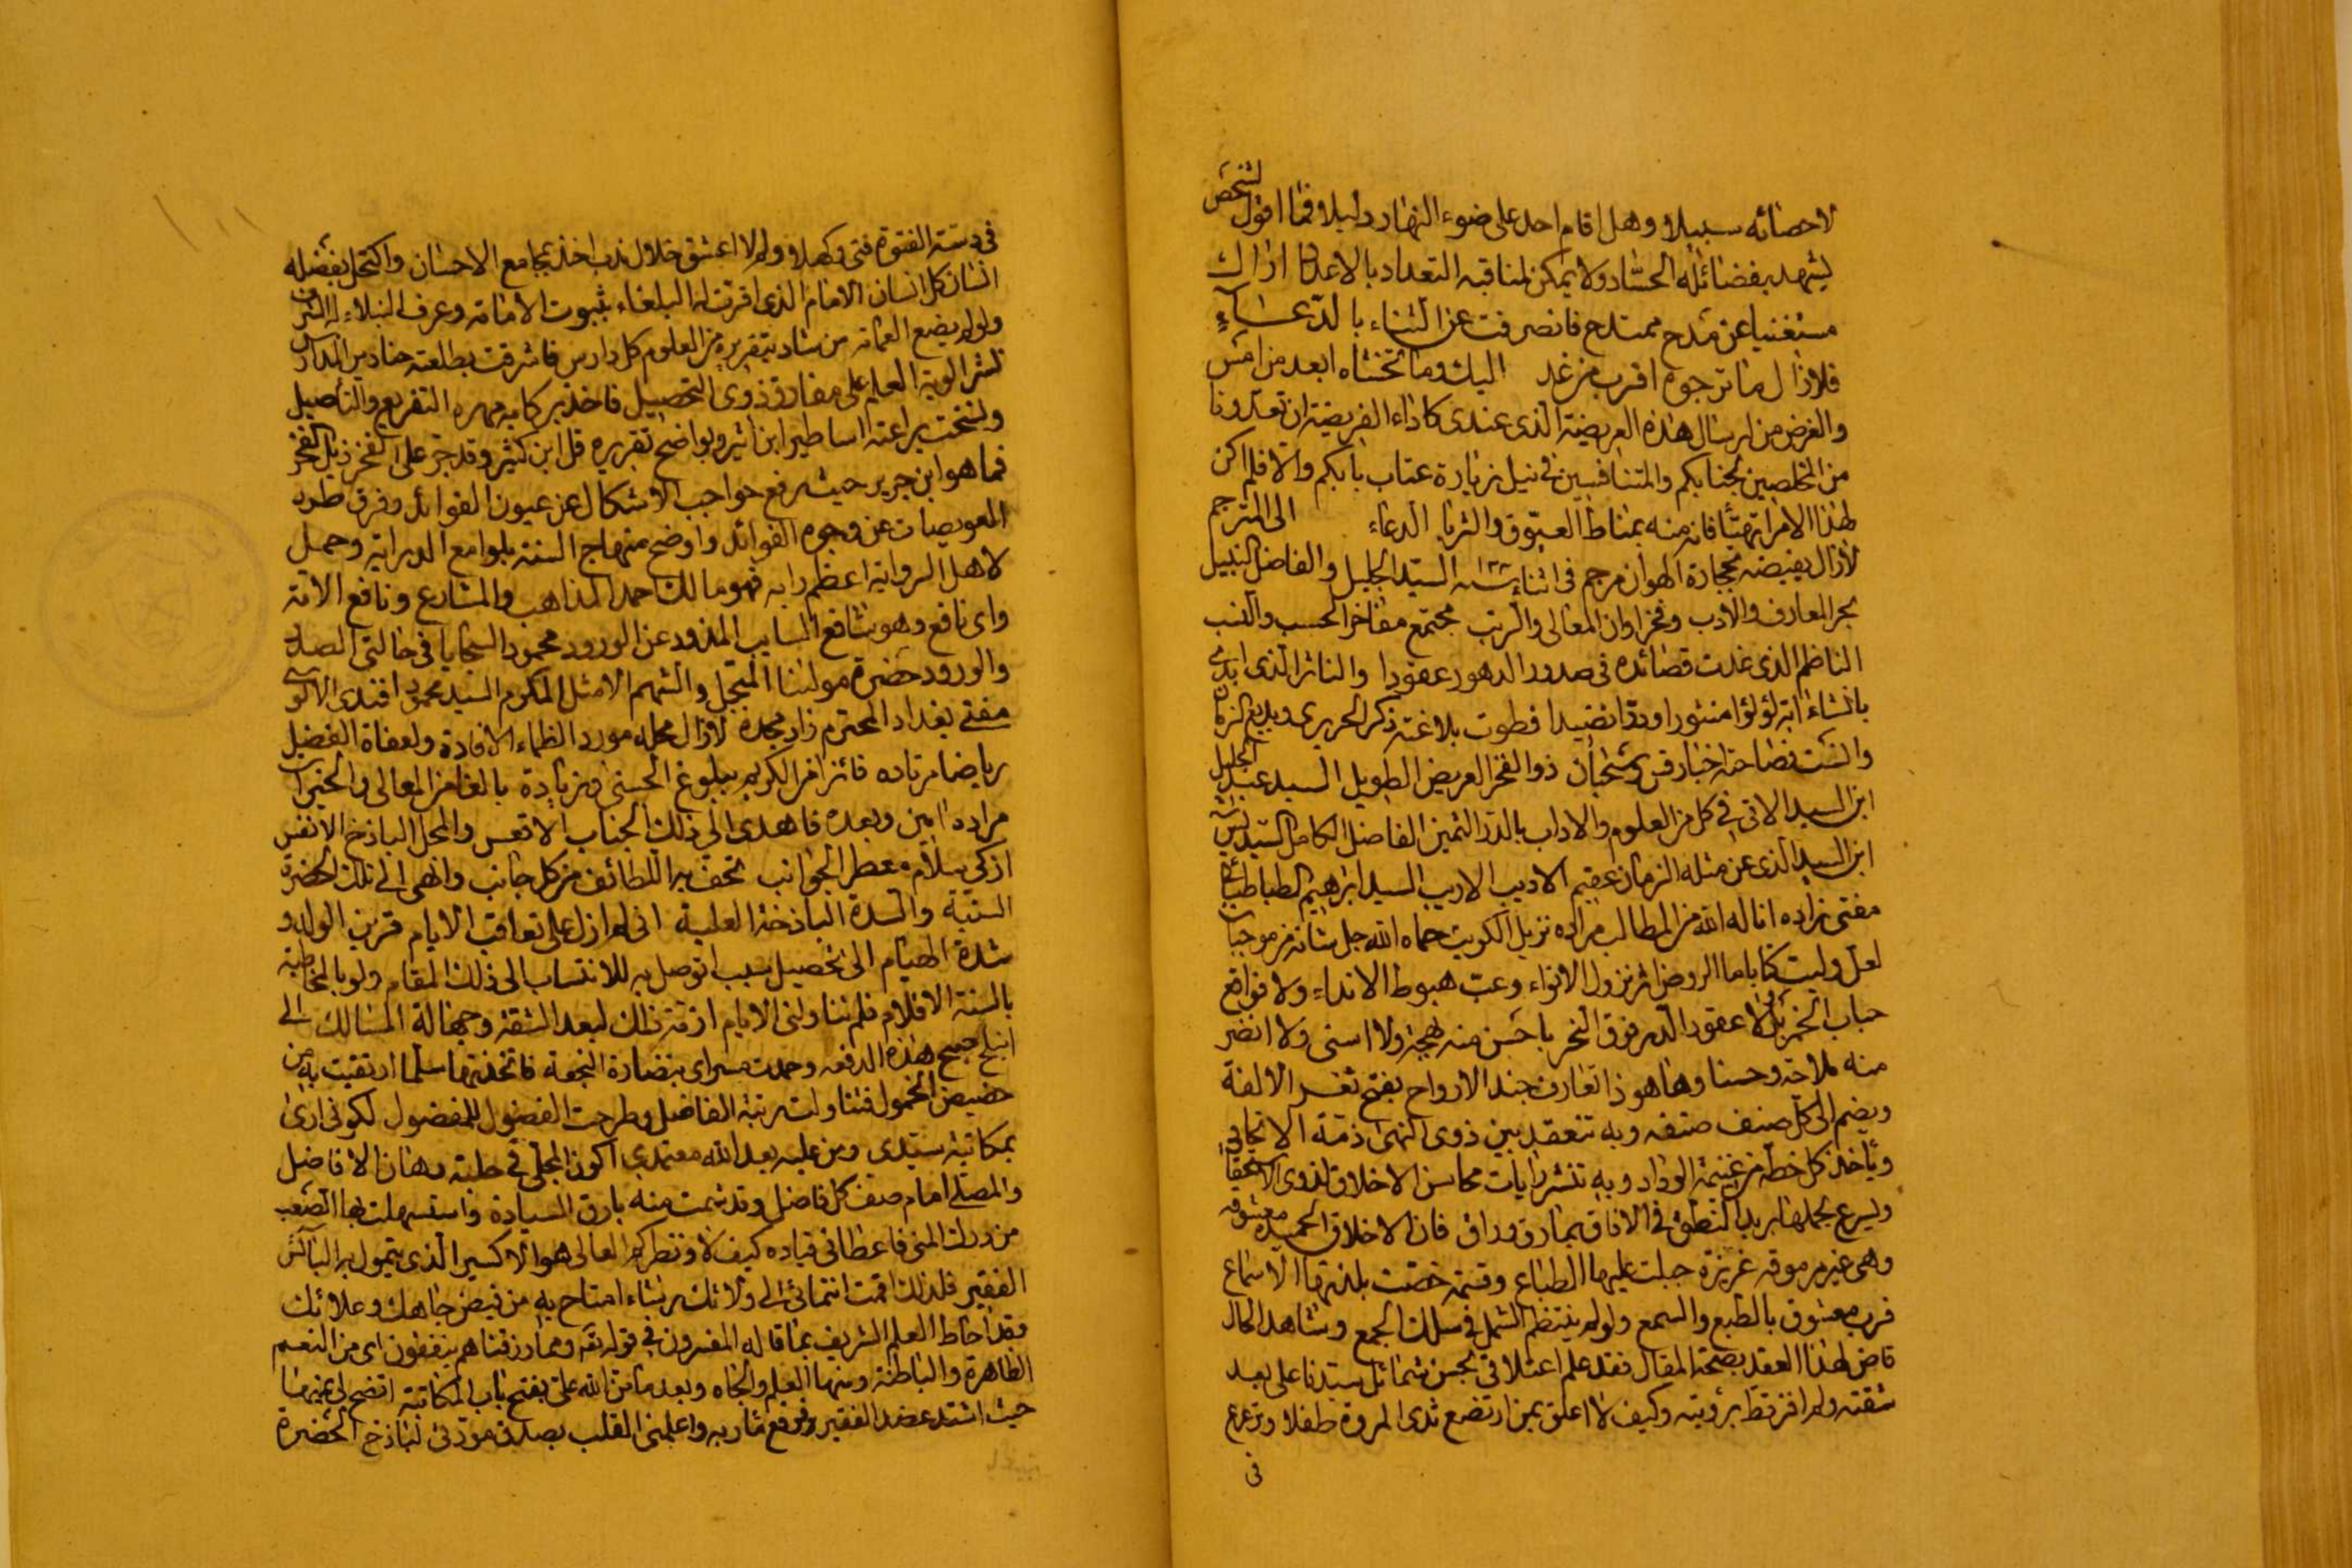 لاحصائه سبيلا وهل اقام احد على ضوء النهار دليلا وفيما اقول لشخص
يشهد بفضائله الحساد ولا يمكن لمناقبه التعداد بالاعداد اراك
مستغنيا عن مدح ممتدح فانصرفت عن الثناء بالدعاء
فلا زال ما ترجوه اقرب من غد اليك وما تخشاه ابعد من امس
والغرض من ارسال هذه العريضة الذي عندي كاداء الفريضة ان تعدونا
من المخلصين لجنابكم والمتنافسين في نيل زيارة عتاب بابكم والا فلم اكن
لهذا الامر اتهيأ فانه منه بمناط العيوق والثريا الدعاء الى المترجم
لازال بفيضه الهوان مرجم في اثناء سنه السيد الجليل والفاضل النبيل
بحر المعارف والادب وفخر اوان المعالى والرتب مجتمع مفاخر الحسب والنسب
الناظم الذي غدت قصائده في صدور الدهور عقودا والناثر الذي ابدى
بانشاءاته لؤلؤا منثورا ودرا نضيدا فطوت بلاغته ذكر الحريري وبديع الزمان
وانست فصاحته اخبار قس وسحبان ذو الفخر العريض الطويل السيد عبد الجليل
ابن السيد الاتى في كل من العلوم والاداب بالدر الثمين الفاضل الكامل السيد يس
ابن السيد الذي عن مثله الزمان عقيم الاديب الاريب السيد ابراهيم الطباطبائي
مفتى زاده اناله الله من المطالب مراده نزيل الكويت حماه الله جل شانه من موجبات
لعل وليت كتابا ما الروض اثر نزول الانواء وغب هبوط الانداء ولا فواقع
حباب الخمر بل لا عقود الدر فوق النحر باحسن منه بهجة ولا اسنى ولا انضر
منه ملاحة وحسنا وها هو ذا تعارف جند الارواح بفتح ثغر الالفة
ويضم الى كل صنف صنفه وبه تنعقد بين ذوى النهى ذمة الايخاء
وياخذ كل خطه من غنيمة الوداد وبه تنشر رايات محاسن الاخلاق لذوى الاستحقاق
ويسرع بحملها بريد النطق في الافاق بما رق وراق فان الاخلاق الحميدة معشوقه
وهى غير مرموقه غريزة جبلت عليها الطباع وقسمة خصت بلذتها الاسماع
فرب معشوق بالطبع والسمع ولو لم ينتظم الشمل في سلك الجمع وشاهد الحال
قاض لهذا العقد بصحة المقال فقد علم اعتلاقى بحسن شمائل سيدنا على بعد
شقته ولم افز قط برؤيته وكيف لا اعلق بمن ارتضع ثدى المروة طفلا وترعرع
في
في دسته الفتوة فتى وكهلا ولم لا اعشق خلال ندب اخذ بمجامع الاحسان واكتحل بفضله
انسان كل انسان الامام الذي اقرت له البلغاء بثبوت الامامة وعرف النبلاء له الشرف
ولو لم يضع العمامة من شاد بتقريره من العلوم كل دارس فاشرقت بطلعته حنادس المدارس
نشر الوية العلم على مفارق ذوى التحصيل فاخذ بركابه مهره التفريع والتأصيل
ونسخت براعته اساطير ابن اثير وبواضح تقريره قل ابن كثير وقد جر على الفخر ذيل الفخر
فما هو ابن جرير حيث رفع حواجب الاشكال عن عيون الفوائد وفرق طرر
العويصات عن وجوه الفوائد واوضح منهاج السنة بلوامع الدراية وحمل
لاهل الرواية اعظم رايه فهو مالك احمد المذاهب والمشارع ونافع الامة
واى نافع وهو شافع السايب المذود عن الورود محمود السجايا في حالتى الصدر
والورود حضرة مولانا المبجل والشهم الامثل المكرم السيد محمود افندى الالوسى
مفتى بغداد المحترم زاد مجده لازال محله مورد الظماء الافادة ولعفاة الفضل
رياضا مرتاده فائزا من الكريم ببلوغ الحسنى وزيادة بالغا من المعالى والخيرات
مراده امين وبعده فاهدى الى ذلك الجناب الاقعس والمحل الباذخ الانفس
ازكى سلام معطر الجوانب تحف به اللطائف من كل جانب وانهى الى تلك الحضرة
السنية والسدة الباذخة العلية انى لم ازل على تعاقب الايام قرين الوله و
شدة الهيام الى تحصيل سبب اتوصل به للانتساب الى ذلك المقام ولو بالمخاطبه
بالسنة الاقلام فلم تناولنى الايام ازمة ذلك لبعد الشقة وجهالة المسالك الى
انبلج صبح هذه الدفعه وحمدت مسراى بنضارة النجعة فاتخذتها سلما ارتقيت به من
حضيض الخمول فتناولت رتبة الفاضل وطرحت الفضول للمفضول لكونى ارى
بمكاتبة سيدى ومن عليه بعد الله معتمدى اكون المجلى في حلبة رهان الافاضل
والمصلى امام صف كل فاضل وقد شمت منه بارق السيادة واستسهلت بها الصعب
من درك المنى فاعطانى قياده كيف لا ونظركم العالى هو الاكسير الذي يتمول به البائس
الفقير فلذلك اقمت انتمائى الى ولائك رشاء امتاح به من فيض جاهك وعلائك
وقد احاط العلم الشريف بما قاله المفسرون في قوله تعه ومما رزقناهم ينفقون اى من النعم
الظاهرة والباطنة ومنها العلم والجاه وبعد ما من الله على بفتح باب المكاتبة اتضح لى يمنها
حيث اشتد عضد الفقير وفرقع ماربه واعلمنى القلب بصدق مودتى لباذخ الحضرة